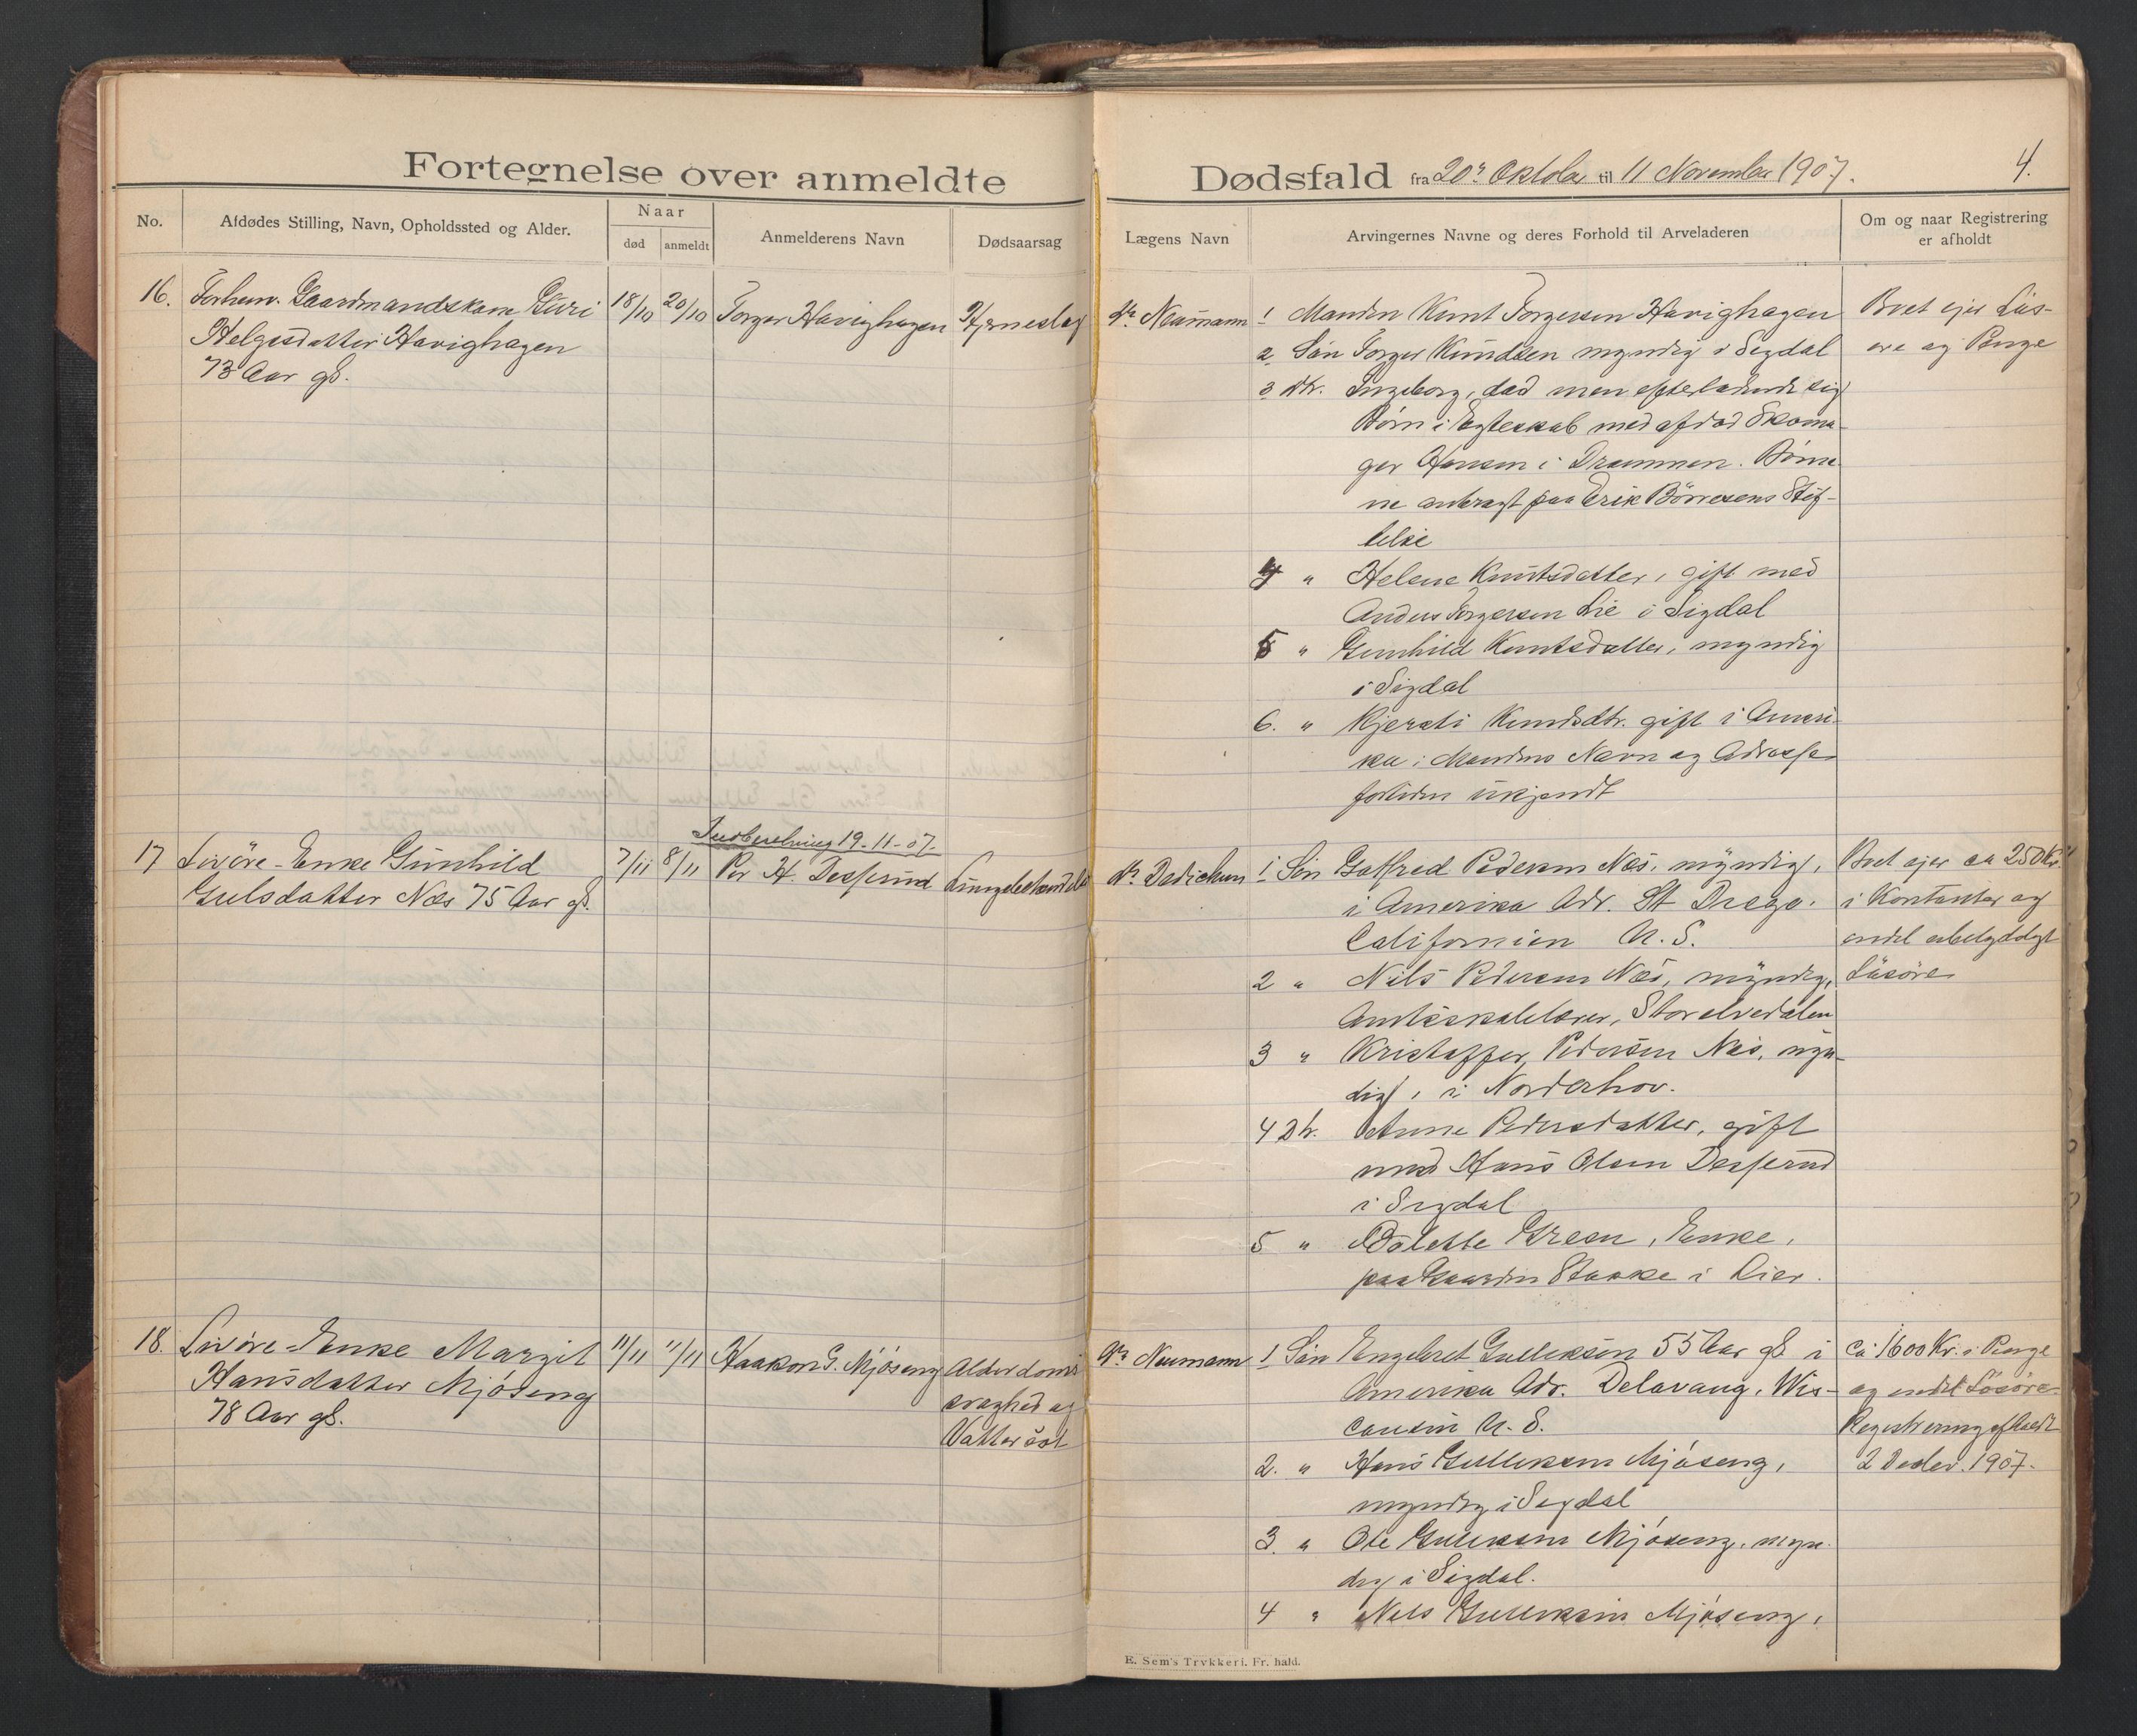 Fortegnelse over anmeldte
Dødsfald fra 20de Oktober til 11 November 1907.
4.
No.
Afdødes Stilling, Navn, Opholdssted og Alder.
Naar
død
anmeldt
Anmelderens Navn
Dødsaarsag
Lægens Navn
Arvingernes Navne og deres Forhold til Arveladeren
Om og naar Registrering
er afholdt
16.
Forhenv. Gaardmandskone Guri
Helgesdatter Havighagen
73 Aar gl.
18/10
20/10
Torger Havighagen
Hjerneslag
Dr. Neumann
1 Manden Knut Torgersen Havighagen
2 Søn Torger Knudsen myndig i Sigdal
3 Dtr. Ingeborg, død men efterladende sig
Børn i Egteskab med afdød Skoma-
ger Hansen i Drammen. Børne-
ne anbragt paa Erik Börresens Stif-
telse
4 " Helene Knutsdatter, gift med
Anders Torgersen Lie i Sigdal
5 " Gunhild Knutsdatter, myndig
i Sigdal
6. " Kjersti Knudsdtr. gift i Ameri-
ka; Mandens Navn og Adresse
fortiden ukjendt
Boet ejer Løs-
øre og Penge
17
Livöre-Enke Gunhild
Gulsdatter Næs 75 Aar gl.
7/11
8/11
Indberetning 19-11-07.
Per H. Desserud
Lungebetændelse
Dr. Dedichen
1 Søn Gulfred Pedersen Næs, myndig,
i Amerika Adr. St Diego.
Californien U. S.
2 " Nils Pedersen Næs, myndig,
Amtsskolelærer, Storelvedalen
3 " Kristoffer Pedersen Næs, myn-
dig, i Norderhov.
4 Dtr. Anne Pedersdatter, gift
med Hans Olsen Desserud
i Sigdal
5 " Bolette Green, Enke,
paa Gaarden Staske i Lier.
Boet ejer ca 250 Kr.
i Kontanter og
endel ubetydeligt
Løsøre
18.
Livöre-Enke Margit
Hansdatter Mjöseng
78 Aar gl.
11/11
11/11
Haakon G. Mjöseng
Alderdoms
svaghed og
Vattersot
Dr. Neumann
1 Søn Engebret Gulleksen 55 Aar gl. i
Amerika Adr. Delavang, Wis-
consin U. S.
2. " Hans Gulleksen Mjöseng,
myndig i Sigdal
3. " Ole Gulleksen Mjöseng, myn-
dig i Sigdal.
4 " Nels Gulleksen Mjöseng,
Ca 1600 Kr. i Penge
og endel Løsøre
Registrering afholdt
2 Decbr. 1907.
E. Sem's Trykkeri. Fr. hald.